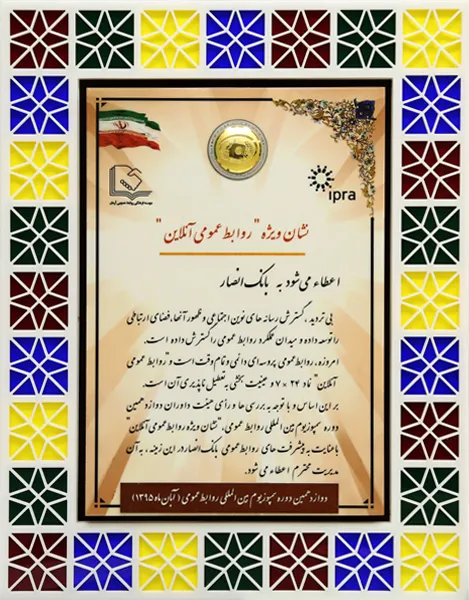 ipra
نشان ویژه "روابط عمومی آنلاین"
اعطاء می شود به بانک انصار
بی تردید، گسترش رسانه های نوین اجتماعی و ظهور آنها، فضای ارتباطی
را توسعه داده و میدان عملکرد روابط عمومی را گسترش داده است.
امروزه، روابط عمومی پروسه ای دائمی و تمام وقت است و "روابط عمومی
آنلاین" نماد ۲۴ × ۷ و عینیت بخشی به تعطیل ناپذیری آن است.
بر این اساس و با توجه به بررسی ها و رأی هیئت داوران دوازدهمین
دوره سمپوزیوم بین المللی روابط عمومی، "نشان ویژه روابط عمومی آنلاین"
با عنایت به پیشرفت های روابط عمومی بانک انصار در این زمینه، به آن
مدیریت محترم اعطاء می شود.
دوازدهمین دوره سمپوزیوم بین المللی روابط عمومی (آبان ماه ۱۳۹۵)